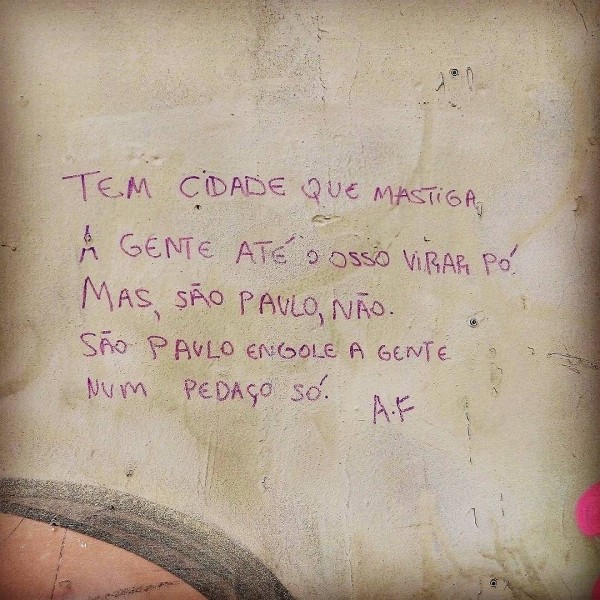 TEM CIDADE QUE MASTIGA
A GENTE ATÉ O OSSO VIRAR PÓ.
MAS, SÃO PAULO, NÃO.
SÃO PAULO ENGOLE A GENTE
NUM PEDAÇO SÓ.
A.F